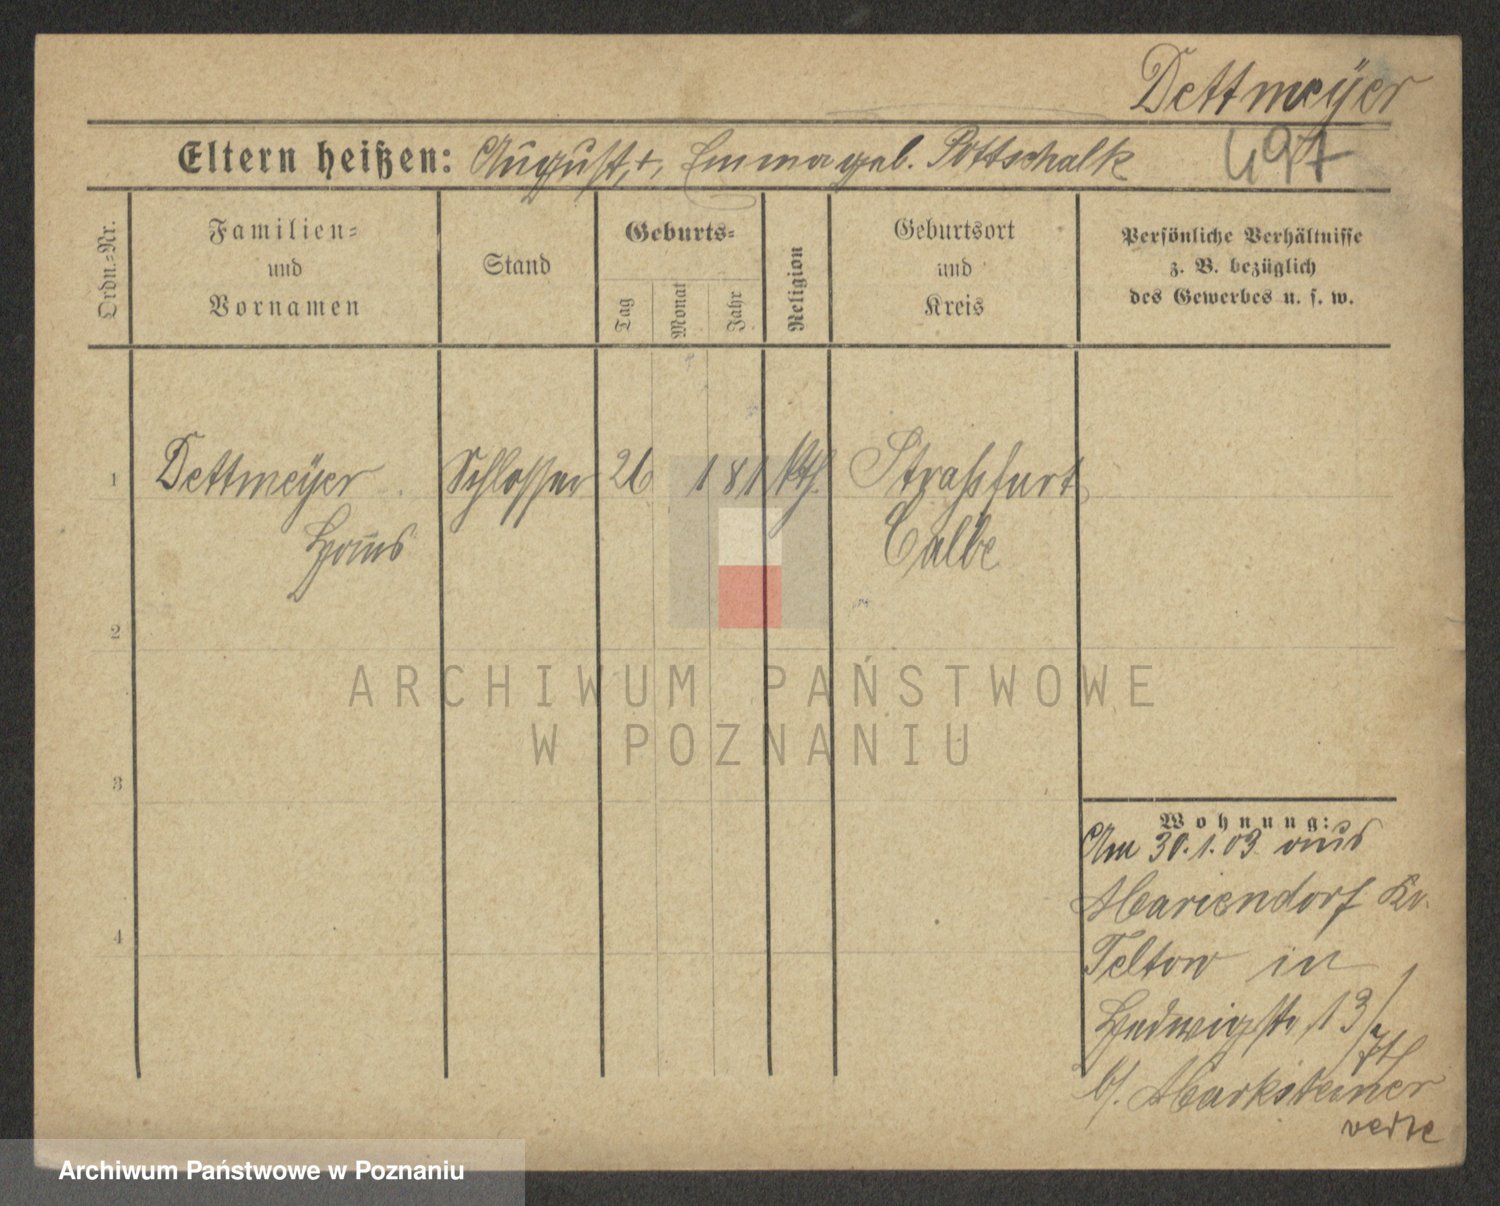 Dettmeÿer
Eltern heißen: August, +, Emma geb. Pottschalk
497
Ordn.-Nr.
Familien-
und
Vornamen
Stand
Geburts-
Tag
Monat
Jahr
Religion
Geburtsort
und
Kreis
Persönliche Verhältnisse
z. B. bezüglich
des Gewerbes u. s. w.
1 Dettmeÿer Schlosser 26 1 81 kth. Strassfurt
Hans Calbe
2
3
4
Wohnung:
Am 30.1.03 aus
Mariendorf Kr.
Teltow in
Hedwigstr 13/
b/. Marksteiner
verte
ARCHIWUM PAŃSTWOWE
W POZNANIU
Archiwum Państwowe w Poznaniu